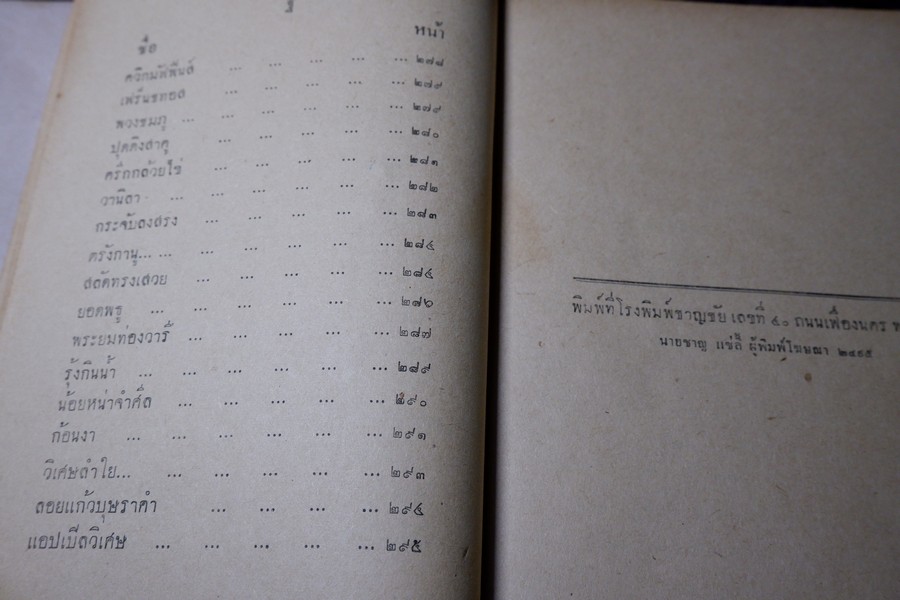 ฐ
ชื่อ หน้า
ควีกมัฟฟินส์ ... ... ... ... ... ๒๗๘
เฟร้นชทอส ... ... ... ... ... ๒๗๙
พวงชมภู ... ... ... ... ... ๒๗๙
ปุดดิงสาคู ... ... ... ... ๒๘๐
ครีกกล้วยไข่ ... ... ... ... ... ๒๘๑
วานิลา ... ... ... ... ... ๒๘๒
กระจับลงสรง ... ... ... ... ... ๒๘๓
ครังกานู... ... ... ... ... ... ๒๘๔
สลัดทรงเสวย ... ... ... ... ... ๒๘๕
ยอดพธู ... ... ... ... ... ... ๒๘๖
พระยมท่องวารี ... ... ... ... ... ๒๘๗
รุ้งกินน้ำ ... ... ... ... ... ... ๒๘๙
น้อยหน่าจำศีล ... ... ... ... ... ๒๙๐
ก้อนงา ... ... ... ... ... ... ๒๙๑
วิเศษลำใย... ... ... ... ... ... ๒๙๓
ลอยแก้วบุษราคำ ... ... ... ... ๒๙๔
แอปเปิลวิเศษ ... ... ... ... ... ๒๙๕
พิมพ์ที่โรงพิมพ์ชาญชัย เลขที่ ๔๐ ถนนเฟื่องนคร
นายชาญ แซ่ลี้ ผู้พิมพ์โฆษณา ๒๔๙๕